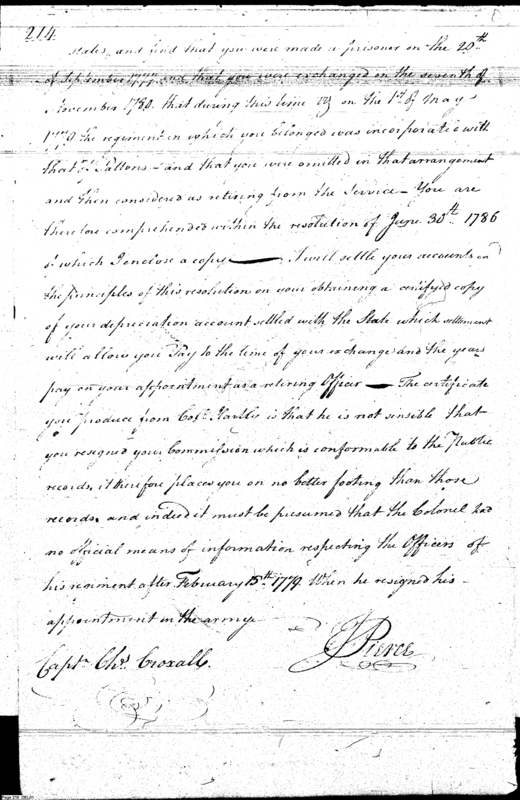 214
states, and find that you were made a prisoner on the 20th
of September 1777 and that you were exchanged on the seventh of
November 1780. that during this time on the 1st of May
1779 the regiment in which you belonged was incorporated with
that of Pattons – and that you were omitted in that arrangement
and then considered as retiring from the Service – You are
therefore comprehended within the resolution of June 30th 1786
of which I enclose a copy — I will settle your accounts on
the principles of this resolution on your obtaining a certifyd copy
of your depreciation account settled with the State which settlement
will allow you Pay to the time of your exchange and the years
pay on your appointment as a retiring Officer — The certificate
you produce from Colo. Hartley is that he is not sensible that
you resigned your Commission which is conformable to the Public
records, it therefore places you on no better footing than those
records, and indeed it must be presumed that the Colonel had
no official means of information respecting the Officers of
his regiment after February 15th 1779. When he resigned his
appointment in the army
J Pierce
Captn Chs. Croxall.